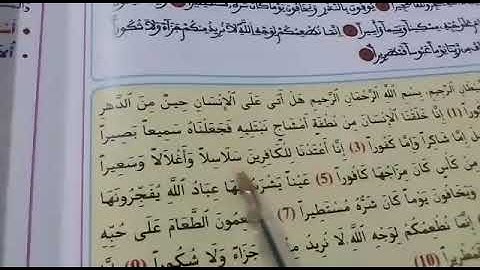 بالنذر ويخافون يوما كان شره مستطيرا
مسكينا ويتيما وأسيرا إنما نطعمكم لوجه الله لا نريد منكم جزاء ولا شكورا
يوما عبوسا قمطريرا
الرجيم، بسم الله الرحمان الرحيم هل آتى على الإنسان حين من الدهر
(1) إنا خلقنا الإنسان من نطفة أمشاج نبتليه فجعلناه سميعاً بصيراً
إما شاكراً وإما كفوراً (3) إنا أعتدنا للكافرين سلاسلاً وأغلالاً وسعيراً
من كأس كان مزاجها كافوراً (5) عيناً يشرب بها عباد الله يفجرونها
ويخافون يوماً كان شره مستطيراً (7) الطعام على حبه
إنما نطعمكم لوجه الله لا نريد جزاء ولا شكوراً (9) إنا
قمطريراً (10)